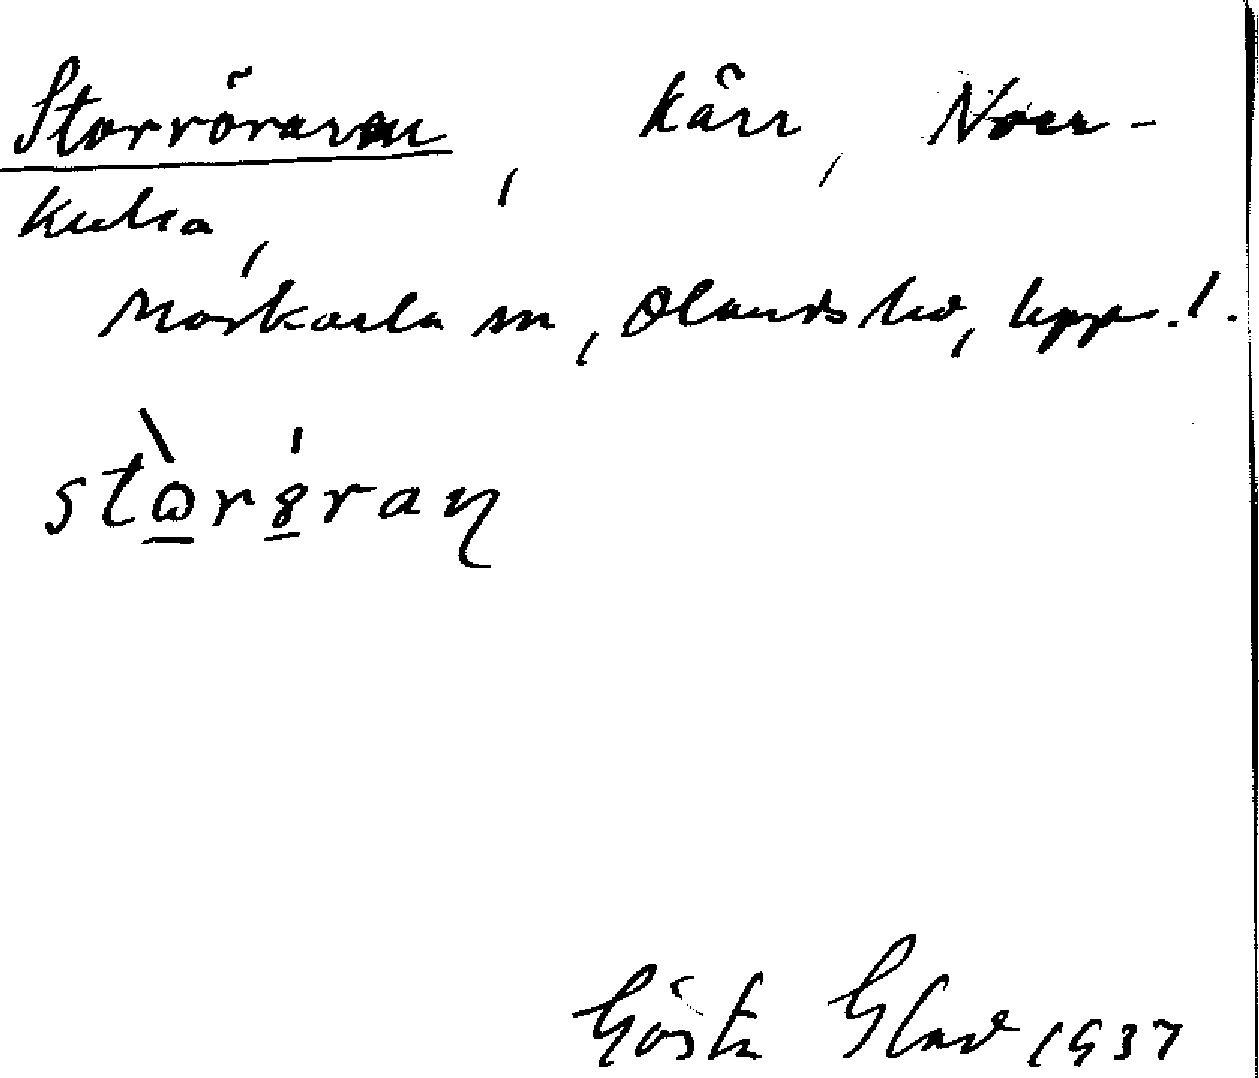 Storrörarna, kärr, Norr-
kulsa,
Morkarla sn, Olands hd, Uppl.
stòröraɳ
Gösta Glad 1937